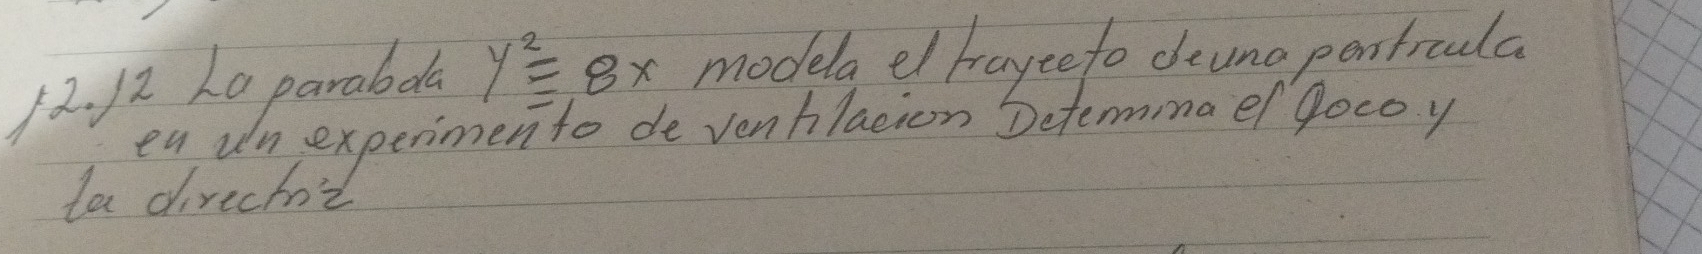 12.12 La parabola y² = 8x modela el trayecto de una partícula
en un experimento de ventilacion Determina el foco y
la directriz